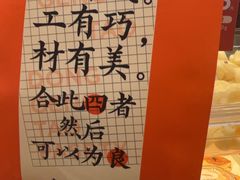 工有巧。
材有美，
合此四者
然后
可以为良